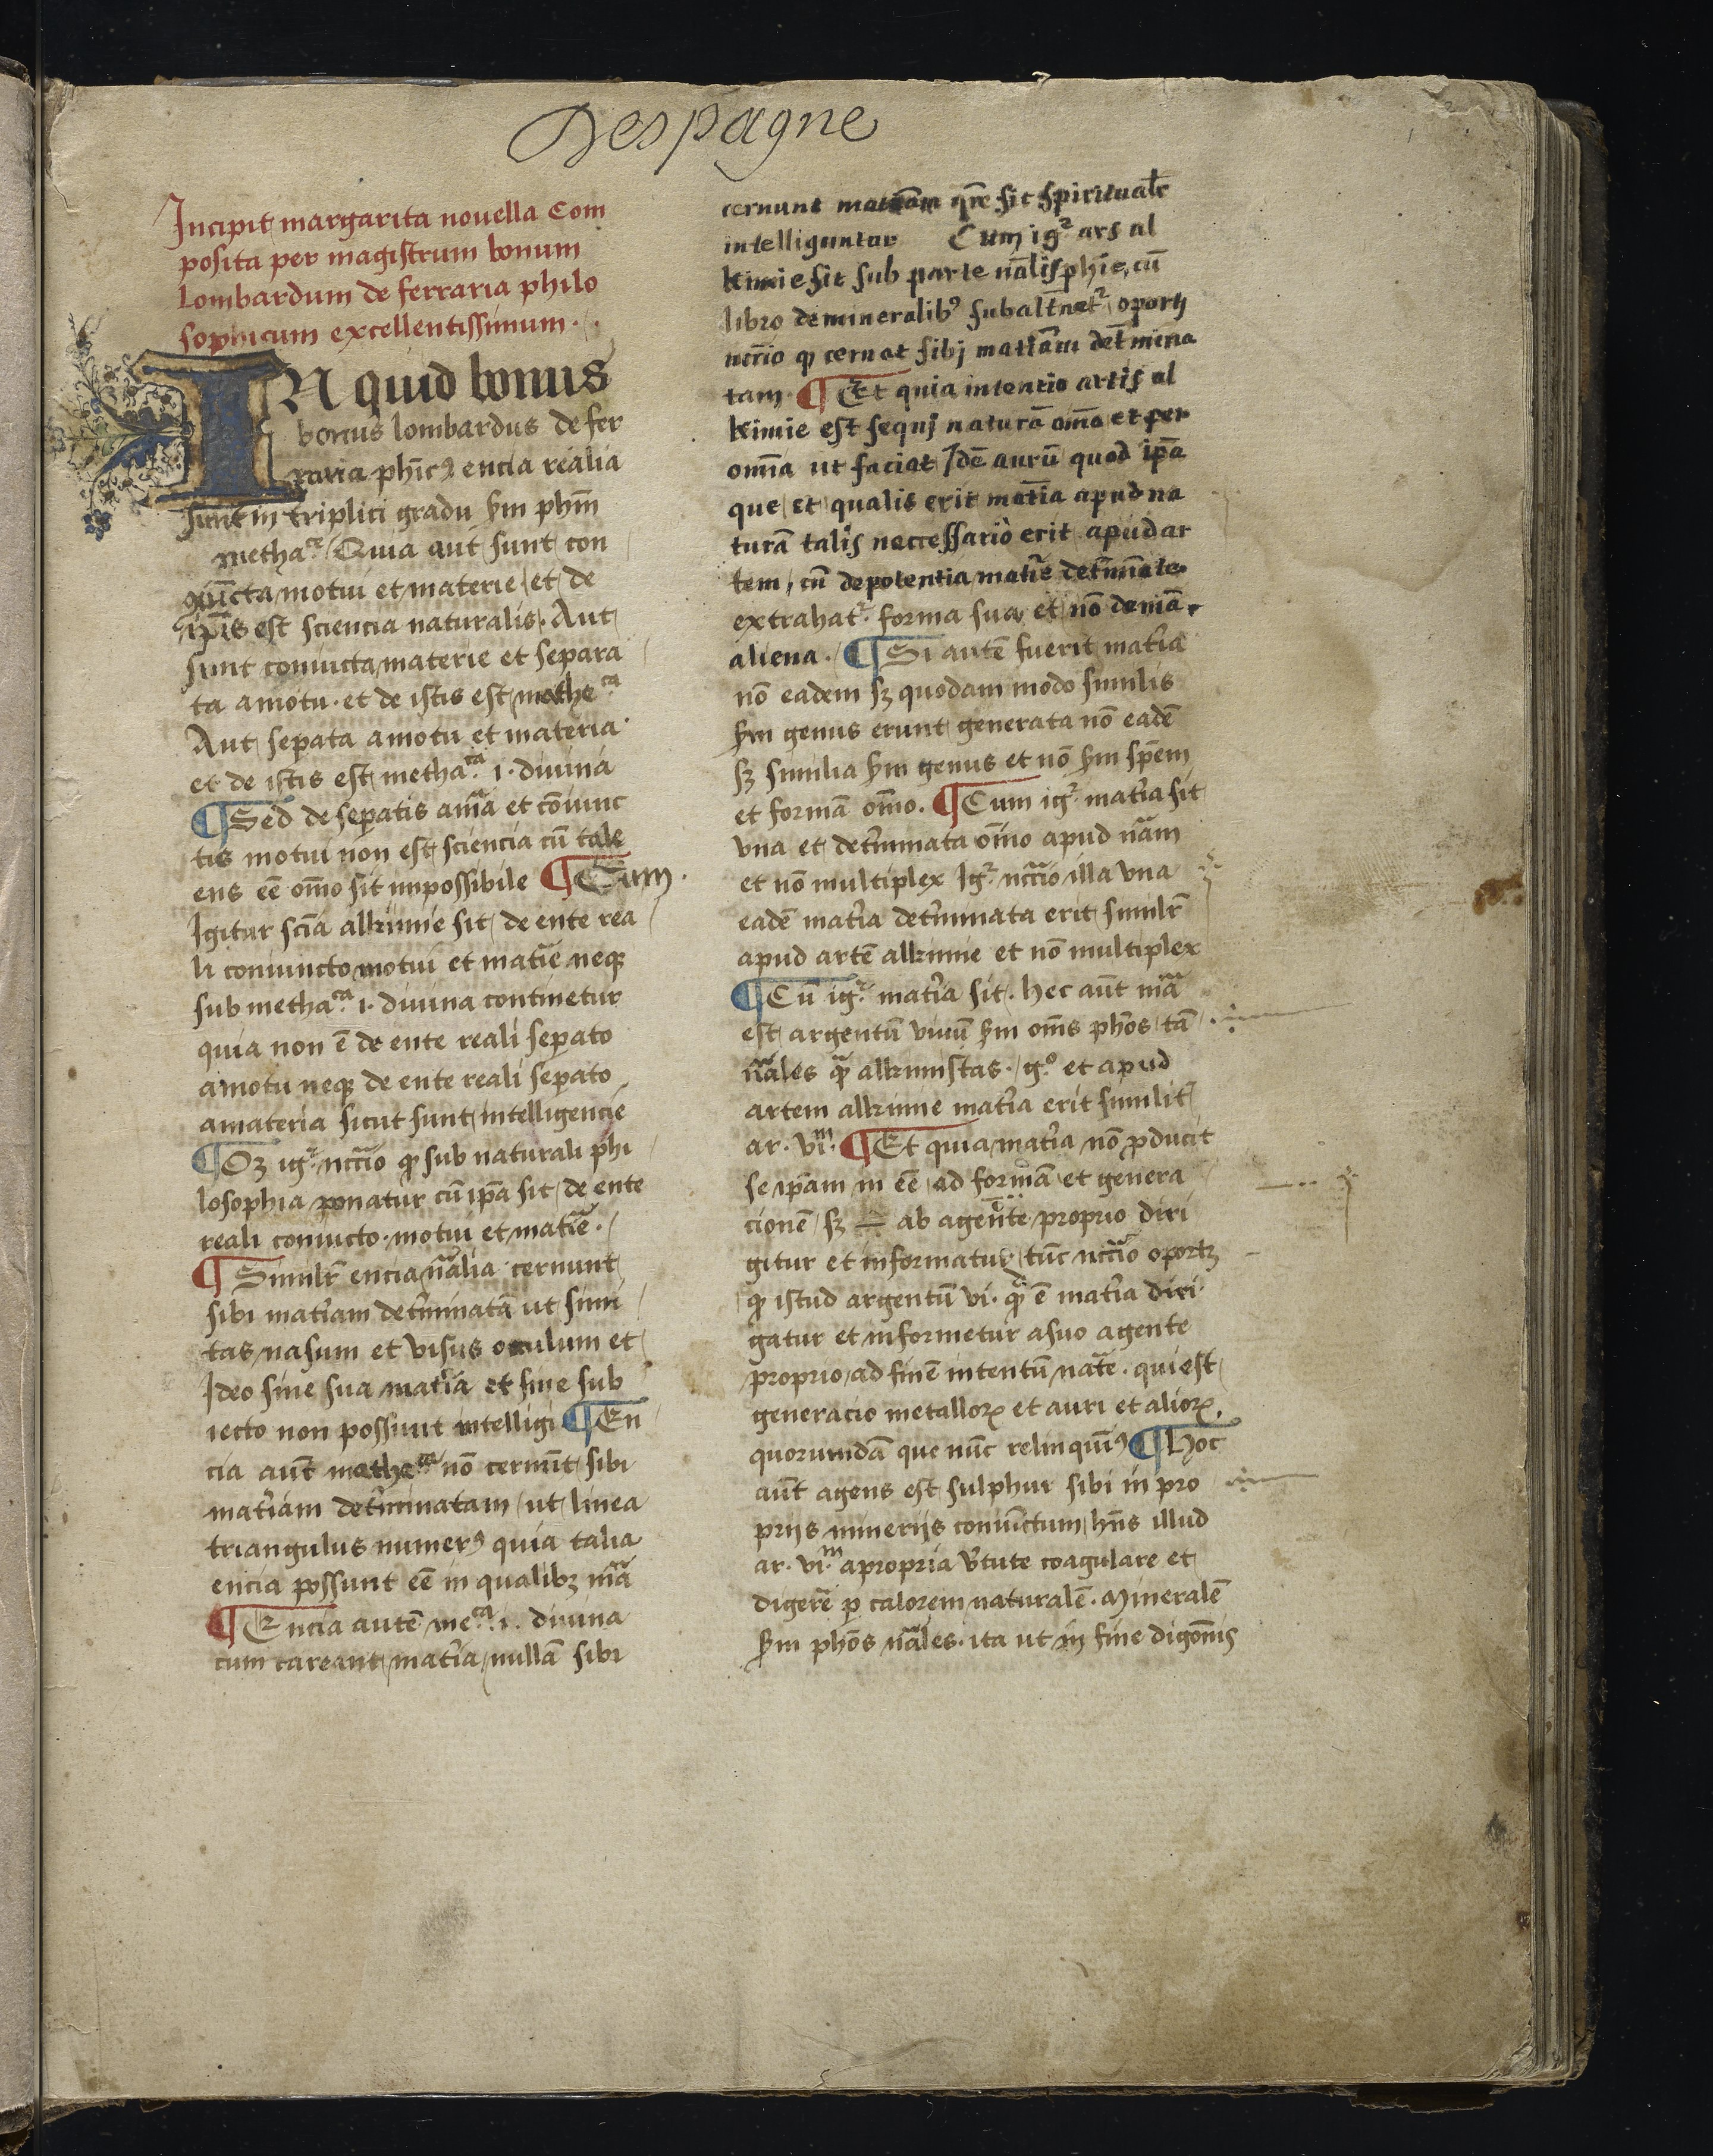 Despagne
Incipit margarita nouella Com
posita per magistrum bonum
lombardum de ferraria philo
sophicum excellentissimum.
IN quid bonus
bonus lombardus de fer
raria phicꝰ encia realia
sunt in triplici gradu ẜm phm̄
metha
Quia aut sunt con
iūcta motui et materie et de
ip̄is est sciencia naturalis. Aut
sunt coniucta materie et separa
ta amotu. et de istis est mathe ca
Aut seꝑata amotu et materia
et de istis est metha ca .i. diuina
¶ Sed de seꝑatis am̄a et cōiunc
tis motui non est sciencia cū tale
ens eē om̄o sit impossibile ¶ Cum
Igitur scīa alkimie sit de ente rea
li coniuncto motui et matīe neqꝫ
sub metha ca .i. diuina continetur
quia non ē de ente reali seꝑato
amotu neqꝫ de ente reali seꝑato
amateria sicut sunt intelligencie
¶ Oꝫ igr̄ nccīo ꝙ sub naturali phi
losophia ponatur cū ip̄a sit de ente
reali coniucto. motui et matīe.
¶ Similr̄ encia nāalia cernunt
sibi matīam detīminatā ut simi
tas nasum et visus oculum et
Ideo sine sua matīa et sine sub
iecto non possunt intelligi ¶ En
cia aūt mathe ca nō cernūt sibi
matīam detīminatam ut linea
triangulus numerꝰ quia talia
encia possunt eē in qualibꝫ mā
¶ Encia autē me ca .i. diuina
cum careant matīa nullā sibi
cernunt matīam qr̄e sit spiritualr̄
intelliguntur Cum igr̄ ars al
kimie sit sub parte nālis phīe, cū
libro de mineralibꝰ subaltn̄etr oportꝫ
ncr̄io ꝙ cernat sibj matīam det̄mina
tam. ¶ Et quia intentio artis al
kimie est sequj naturā om̄o et per
omīa ut faciat Idē aurū quod ip̄a
que et qualis erit matīa apud na
turā talis neccessario erit apud ar
tem, cū de potentia matīe det̄minate
extrahatr forma sua et nō de mā
aliena. ¶ Si autē fuerit matīa
nō eadem sꝫ quodam modo similis
ẜm genus erunt generata nō eadē
sꝫ similia ẜm genus et nō ẜm spēm
et formā om̄o. ¶ Cum igr̄ matīa sit
vna et detīminata om̄o apud nām
et nō multiplex Igr̄ nccīo illa vna
eadē matīa detīminata erit similr̄
apud artē alkimie et nō multiplex
¶ Cū igr̄ matīa sit. hec aūt mā
est argentū viuū ẜm om̄s phōs tā
nāles qm̄ alkimistas. gͦ et apud
artem alkimie matīa erit similit
ar. vi m. ¶ Et quia matīa nō ꝓducit
se ip̄am in eē ad formā et genera
cionē sꝫ ab agente proprio diri
gitur et informatur tūc nccīo oportꝫ
ꝙ istud argentū vi. ꝙ ē matīa diri
gatur et informetur asuo agente
proprio ad finē intentū nate. qui est
generacio metalloꝝ et auri et alioꝝ.
quorumdā que nūc relinquimꝰ ¶ Hoc
aūt agens est sulphur sibi in pro
prijs minerijs coniūctum hn̄s illud
ar. vi m apropria v̄tute coagulare et
digerē ꝑ calorem naturalē. Mineralē
ẜm phōs nāles. ita ut in fine digōnis